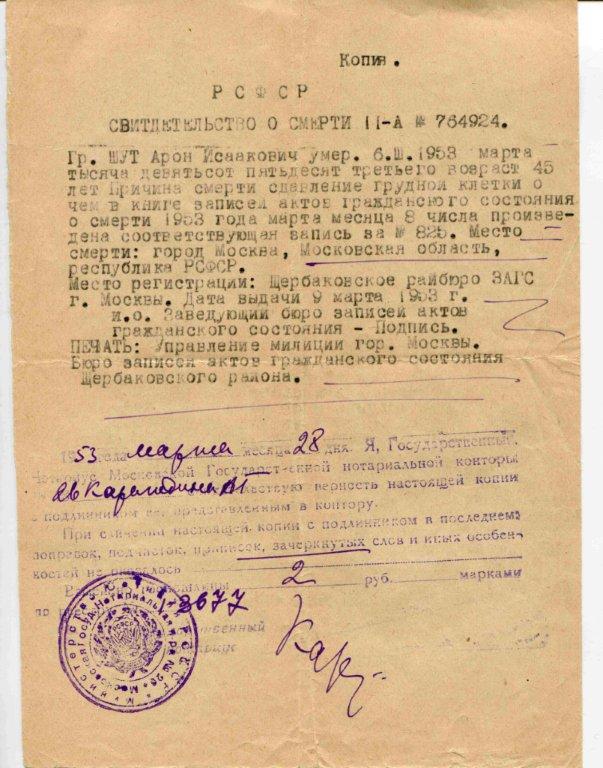 Копия.
РСФСР
СВИТДЕТЕЛЬСТВО О СМЕРТИ II-А № 764924.
Гр. ШУТ Арон Исаакович умер. 6.Ш.1953 марта
тысяча девятьсот пятьдесят третьего возраст 45
лет Причина смерти сдавление грудной клетки о
чем в книге записей актов гражданского состояния
о смерти 1953 года марта месяца 8 числа произве-
дена соответствующая запись за № 825. Место
смерти: город Москва, Московская область,
республика РСФСР.
Место регистрации: Щербаковское райбюро ЗАГС
г. Москвы. Дата выдачи 9 марта 1953 г.
и.о. Заведующий бюро записей актов
гражданского состояния - Подпись.
ПЕЧАТЬ: Управление милиции гор. Москвы.
Бюро записей актов гражданского состояния
Щербаковского района.
1953 года марта месяца 28 дня. Я, Государственный
Нотариус Московской Государственной нотариальной конторы
верность настоящей копии
с подлинником ее, представленным в контору.
При сличении настоящей копии с подлинником в последнем
поправок, подчисток, приписок, зачеркнутых слов и иных особен-
ностей не оказалось
2 руб. марками
по 3677